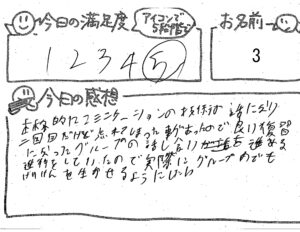 今日の満足度
アイコンで
5段階で
お名前
1 2 3 4 5
3
今日の感想
具体的にコミュニケーションの 話になり
二回目だけど忘れてしまった事があったので良い復習
になった グループの話し合い 進める
進行をしていたので実際にグループの中でも
を生かせるようにしたい